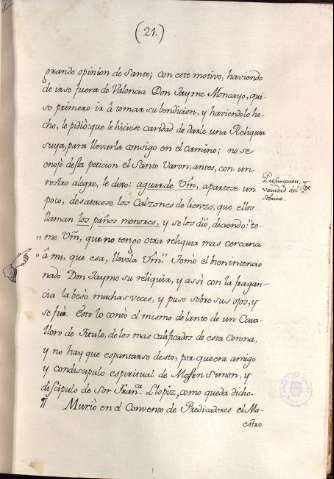 (21.)
grande opinion de Santo; con este motivo, haviendo
de irse fuera de Valencia Don Jayme Moncayo, qui-
so primero ir à tomar su bendicion, y haviendolo he-
cho, le pidiò: que le hiciese caridad de darle una Reliquia
suya, para llevarla consigo en el camino; no se
enojò desta peticion el Santo Varon; antes, con un
rostro alegre, le dixo: aguarde Vm, apartose un
poco, desatacose los Calzones de lienzo, que ellos
llaman los paños menores, y se los diò, diciendo: to-
" me Vm, que no tengo otra reliquia mas cercana
" à mi, que esa, llevela Vm." Tomò el bien intencio-
nado Don Jayme su reliquia, y assi con la fragan-
cia la besò muchas veces, y puso sobre sus ojos, y
se fue. Esto lo contò el mismo delante de un Cava-
llero de Titulo, de los mas calificados de esta Corona,
y no hay que espantarse desto, porque era amigo
y condiscipulo espiritual de Mosen Simon, y
discipulo de Sor Fran.ca Llopiz, como queda dicho.
Murio en el Convento de Predicadores el Ma-
estro